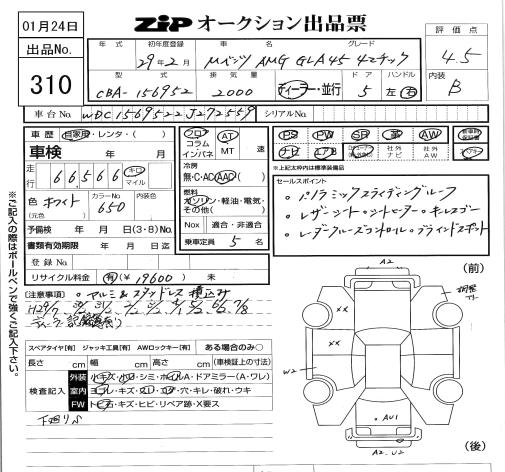 01月24日
ZIP オークション出品票
出品No.
310
評価点
4.5
内装
B
年式 初年度登録 車名 グレード
29年2月 Mベンツ AMG GLA45 4マチック
型式 排気量 ドア ハンドル
CBA-156952 2000 ディーラー・並行 5 左・右
車台No. WDC1569522J272559 シリアルNo.
車歴 自家用・レンタ・( )
車検 年 月
走行 66566 キロ マイル
色 ホワイト カラーNo. 650 内装色
(元色)
予備検 年 月 日(3・8)No.
書類有効期限 年 月 日迄
登録No.
リサイクル料金 有(¥19600) 未
フロア コラム インパネ AT MT 速
冷房
無・C・AC(AAC)( )
燃料
ガソリン・軽油・電気・その他( )
Nox 適合・非適合
乗車定員 5 名
PS PW SR 革 AW
ナビ エアB 社外ナビ 社外AW
※上記太枠内は標準装備品
セールスポイント
・パノラミックスライディングルーフ
・レザーシート・シートヒーター・キーレスゴー
・レーダークルーズコントロール・ブラインドスポット
※ご記入の際はボールペンで強くご記入下さい。
[注意事項] ・アルミ&スタッドレス積込み
スペアタイヤ[有] ジャッキ工具[有] AWロックキー[有] ある場合のみ○
長さ cm 幅 cm 高さ cm (車検証上の寸法)
検査記入
外装 小キズ・小凹・シミ・ホイルA・ドアミラー(A・ワレ)
室内 ヨゴレ・キズ・スレ・コゲ・穴・キレ・破れ・ウキ
FW トビ石・キズ・ヒビ・リペア跡・X要ス
下廻りS
(前)
A2
XX
XX
W2
・AU1
A2.U2
(後)